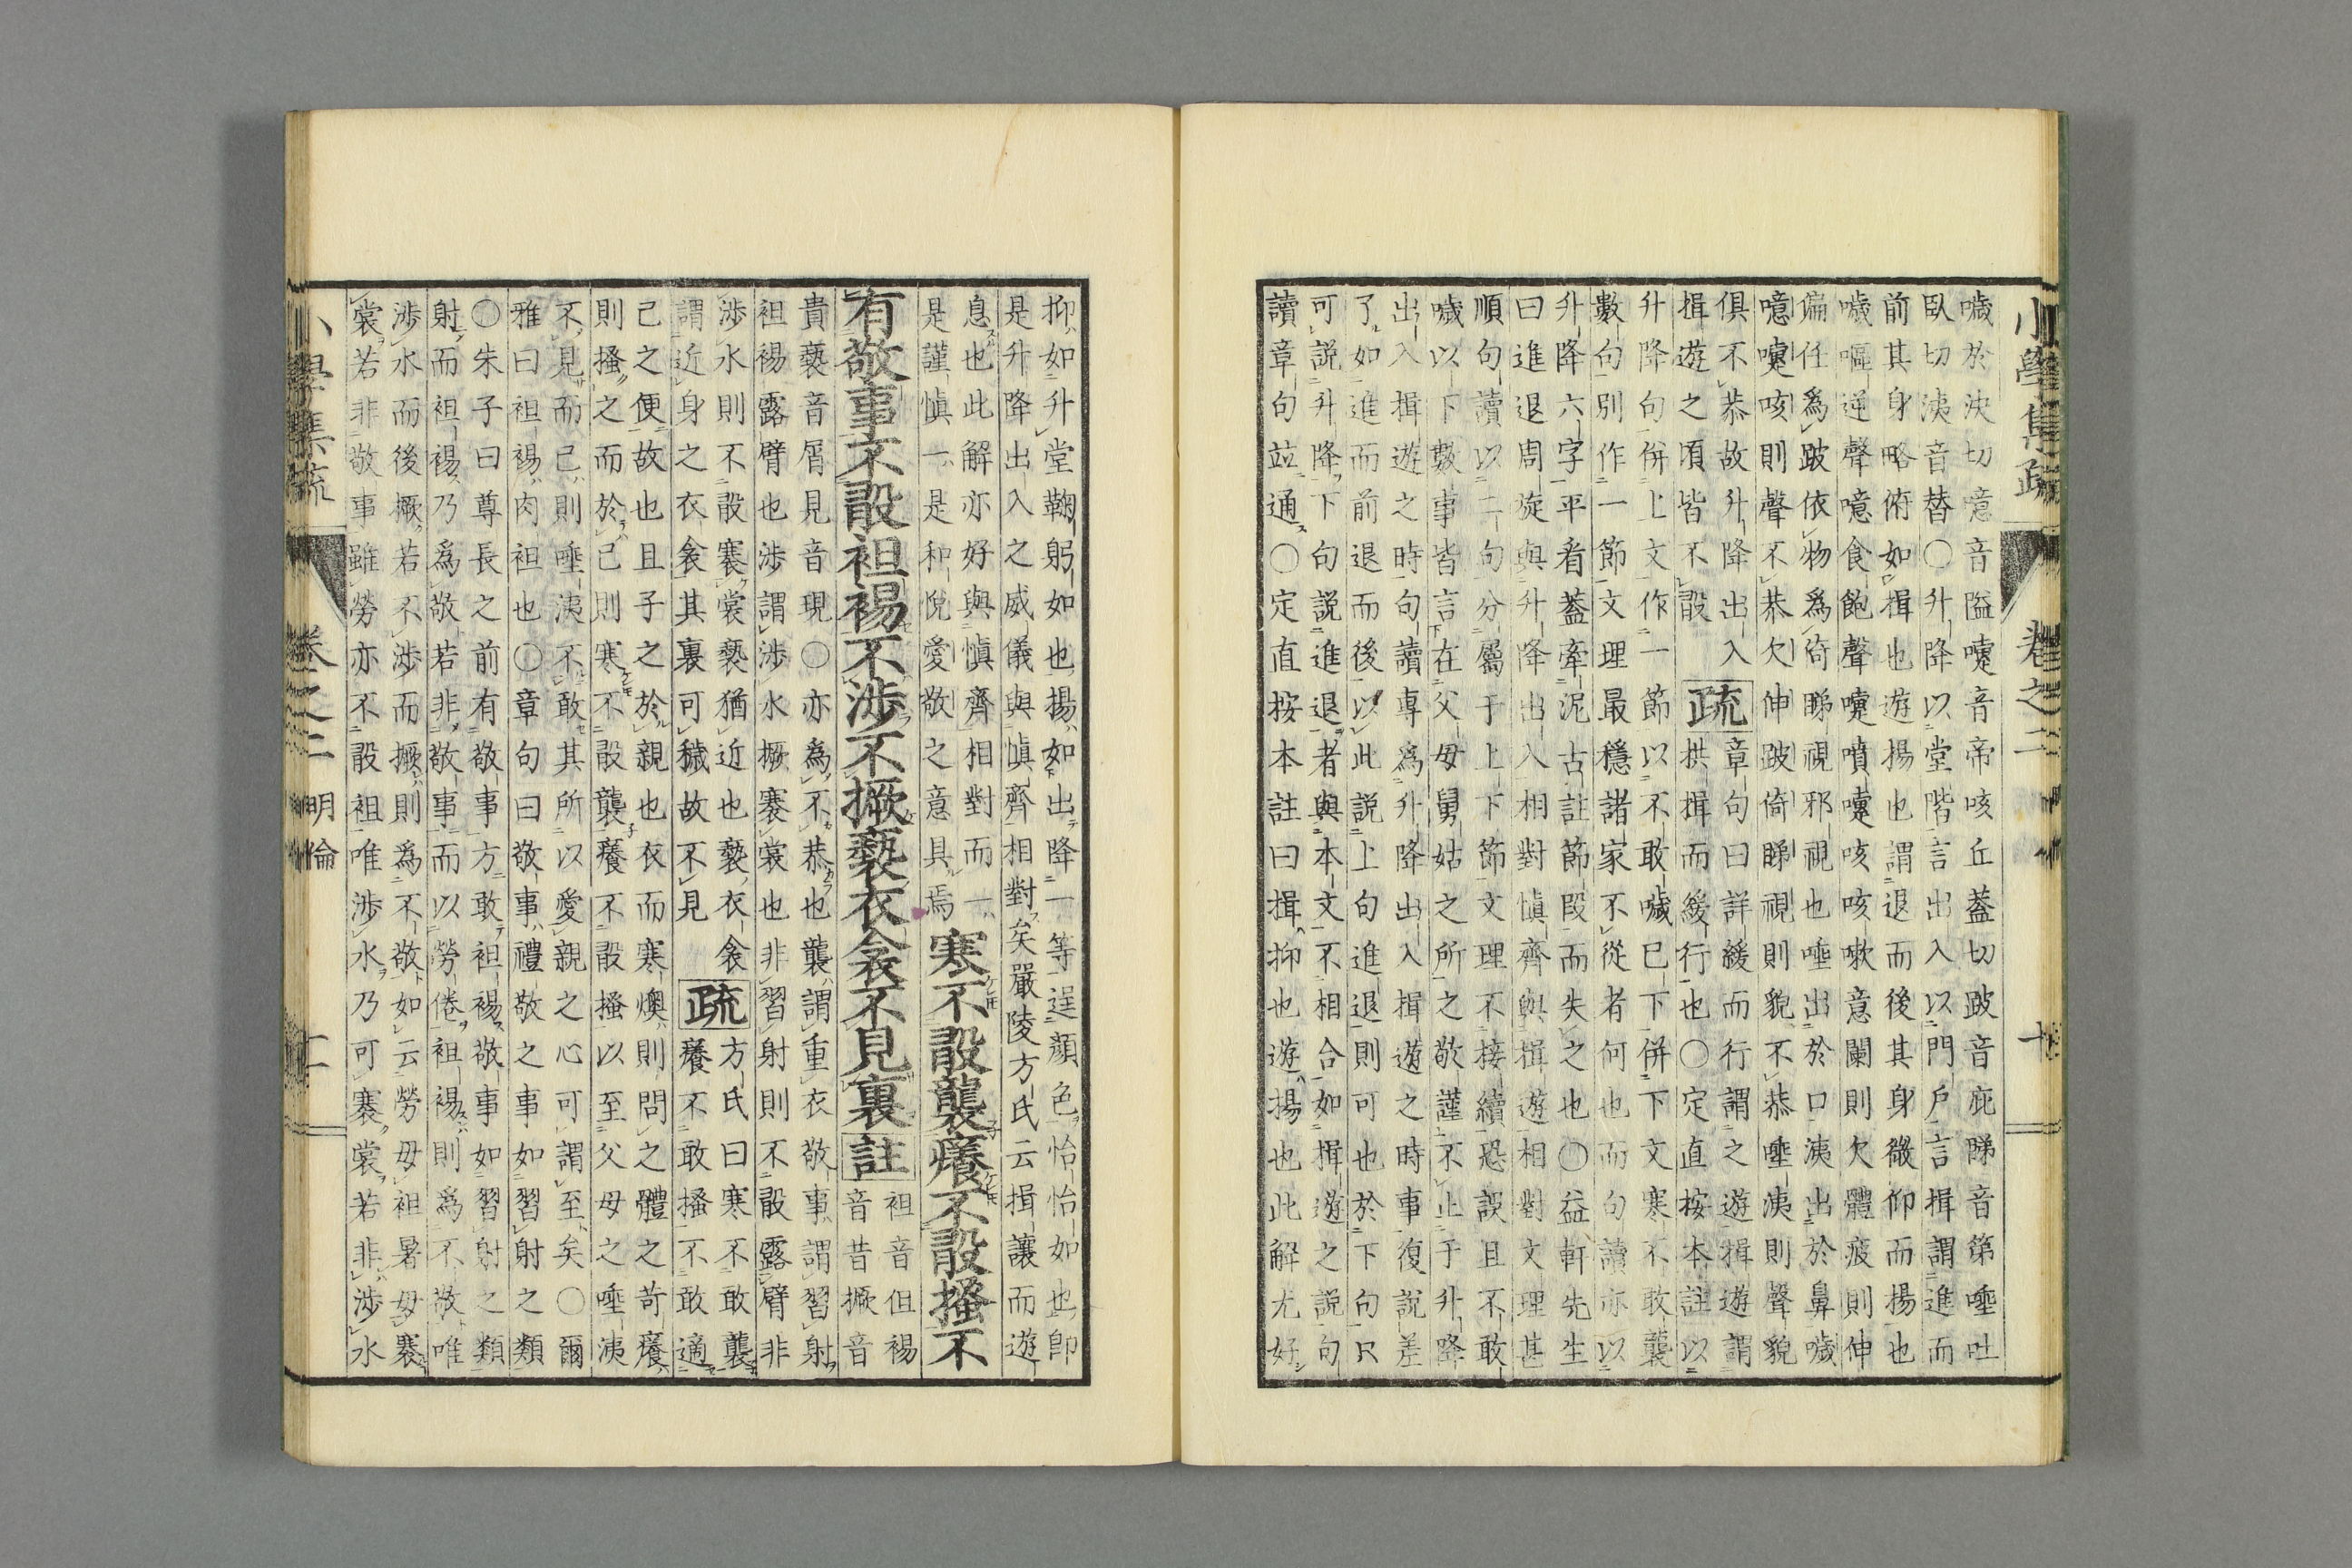 小學集疏 卷之二 十
噦於決切噫音隘嚏音帝咳丘蓋切跛音庇睇音第唾吐
臥切洟音替〇升降以堂階言出入以門戶言揖謂進而
前其身略俯如揖也遊揚也謂退而後其身微仰而揚也
噦嘔逆聲噫食飽聲嚏噴嚏咳咳嗽意闌則欠體疲則伸
偏任爲跛依物爲倚睇視邪視也唾出於口洟出於鼻噦
噫嚏咳則聲不恭欠伸跛倚睇視則貌不恭唾洟則聲貌
俱不恭故升降出入
揖遊之頃皆不敢
疏
章句曰詳緩而行謂之遊揖遊謂
拱揖而緩行也〇定直按本註以
升降句併上文作一節以不敢噦已下併下文寒不敢襲
數句別作一節文理最穩諸家不從者何也而句讀亦以
升降六字平看蓋牽泥古註節段而失之也〇益軒先生
曰進退周旋與升降出入相對愼齊與揖遊相對文理甚
順句讀以二句分屬于上下節文理不接續恐誤且不敢
噦以下數事皆言在父母舅姑之所之敬謹不止于升降
出入揖遊之時句讀專爲升降出入揖遊之時事復說差
了如進而前退而後以此說上句進退則可也於下句只
可說升降下句說進退者與本文不相合如揖遊之說句
讀章句竝通〇定直按本註曰揖抑也遊揚也此解尤好
抑如升堂鞠躬如也揚如出降一等逞顏色怡怡如也即
是升降出入之威儀與愼齊相對矣嚴陵方氏云揖讓而遊
息也此解亦好與愼齊相對而一
是謹愼一是和悅愛敬之意具焉
寒不敢襲癢不敢搔不
有敬事不敢袒裼不涉不撅褻衣衾不見裏
註
袒音但裼
音昔撅音
貴褻音屑見音現〇亦爲不恭也襲謂重衣敬事謂習射
袒裼露臂也涉謂涉水撅褰裳也非習射則不敢露臂非
涉水則不敢褰裳褻猶近也褻衣衾
謂近身之衣衾其裏可穢故不見
疏
方氏曰寒不敢襲
癢不敢搔不敢適
己之便故也且子之於親也衣而寒燠則問之體之苛癢
則搔之而於己則寒不敢襲癢不敢搔以至父母之唾洟
不見而己則唾洟不敢其所以愛親之心可謂至矣〇爾
雅曰袒裼肉袒也〇章句曰敬事禮敬之事如習射之類
〇朱子曰尊長之前有敬事方敢袒裼敬事如習射之類
射而袒裼乃爲敬若非敬事而以勞倦袒裼則爲不敬唯
涉水而後撅若不涉而撅則爲不敬如云勞毋袒暑毋褰
裳若非敬事雖勞亦不敢袒唯涉水乃可褰裳若非涉水
小學集疏 卷之二 明倫